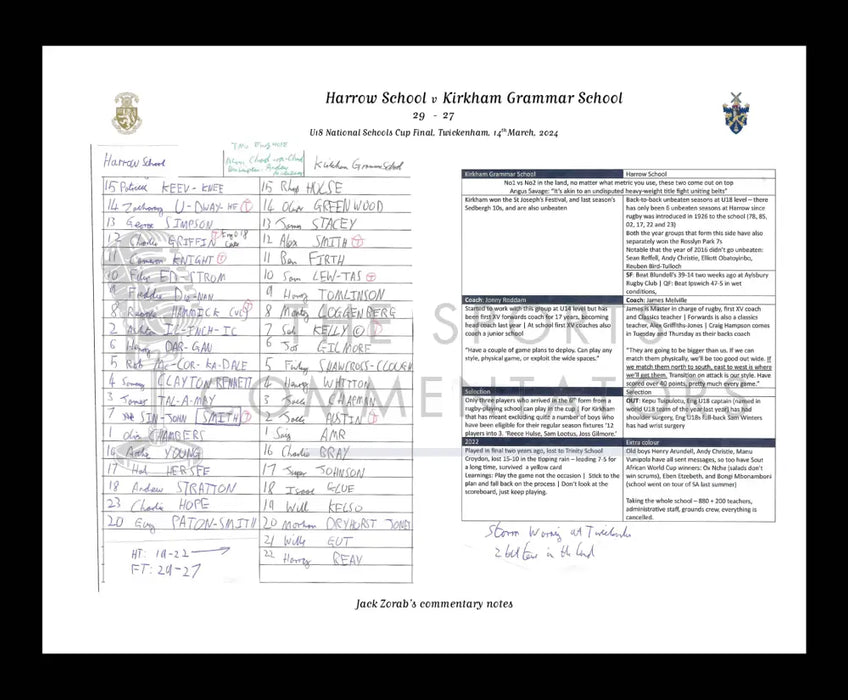 Harrow School v Kirkham Grammar School
29 - 27
U18 National Schools Cup Final, Twickenham, 14th March, 2024
Harrow School
Kirkham Grammar School
15 Patrick KEEV-KNEE
14 Zachary U-DWAY-HE
13 George SIMPSON
12 Charlie GRIFFIN
11 Cameron KNIGHT
10 ED-STROM
9 Freddie
8 HAMMICK (VC)
2 IL-INCH-IC
6 Harvey DAR-GAN
5 Rob MC-COR-KA-DALE
4 Sonny CLAYTON BENNETT
3 James TAL-A-MAY
7 SIN-JOHN SMITH
1 CHAMBERS
16 YOUNG
17 Hal HERSEE
18 Andrew STRATTON
23 Charlie HOPE
20 Guy PATON-SMITH
HT: 19-22
FT: 29-27
15 Rhys HULSE
14 Oliver GREENWOOD
13 STACEY
12 Alex SMITH
11 Ben FIRTH
10 Sam LEW-TAS
9 Harry TOMLINSON
8 COGGENBERG
7 Sol KELLY
6 Joss GILMORE
5 Finlay SHAWCROSS-CLOUGH
4 Harry WHITTON
3 CHAPMAN
2 AUSTIN
1 AMR
16 Charlie BRAY
17 JOHNSON
18 Isaac GLUE
19 Will KELSO
20 DRYHURST JONES
21 Wills GUT
22 Harry REAV
Kirkham Grammar School
Harrow School
No1 vs No2 in the land, no matter what metric you use, these two come out on top
Angus Savage: "It's akin to an undisputed heavy-weight title fight uniting belts"
Kirkham won the St Joseph's Festival, and last season's
Sedbergh 10s, and are also unbeaten
Back-to-back unbeaten seasons at U18 level – there
has only been 6 unbeaten seasons at Harrow since
rugby was introduced in 1926 to the school (78, 85,
02, 17, 22 and 23)
Both the year groups that form this side have also
separately won the Rosslyn Park 7s
Notable that the year of 2016 didn't go unbeaten:
Sean Reffell, Andy Christie, Elliott Obatoyinbo,
Reuben Bird-Tulloch
SF: Beat Blundell's 39-14 two weeks ago at Aylsbury
Rugby Club | QF: Beat Ipswich 47-5 in wet
conditions,
Coach: Jonny Roddam
Started to work with this group at U14 level but has
been first XV forwards coach for 17 years, becoming
head coach last year | At school first XV coaches also
coach a junior school
"Have a couple of game plans to deploy. Can play any
style, physical game, or exploit the wide spaces."
Coach: James Melville
James is Master in charge of rugby, first XV coach
and Classics teacher | Forwards is also a classics
teacher, Alex Griffiths-Jones | Craig Hampson comes
in Tuesday and Thursday as their backs coach
"They are going to be bigger than us. If we can
match them physically, we'll be too good out wide. If
we match them north to south, east to west is where
we'll get them. Transition on attack is our style. Have
scored over 40 points, pretty much every game."
Selection
Only three players who arrived in the 6th form from a
rugby-playing school can play in the cup | For Kirkham
that has meant excluding quite a number of boys who
have been eligible for their regular season fixtures '12
players into 3. 'Reece Hulse, Sam Lootus, Joss Gilmore.'
Selection
OUT: Kepu Tuipulotu, Eng U18 captain (named in
world U18 team of the year last year) has had
shoulder surgery, Eng U18s full-back Sam Winters
has had wrist surgery
2022
Played in final two years ago, lost to Trinity School
Croydon, lost 15-10 in the tipping rain – leading 7-5 for
a long time, survived a yellow card
Learnings: Play the game not the occasion | Stick to the
plan and fall back on the process | Don't look at the
scoreboard, just keep playing.
Extra colour
Old boys Henry Arundell, Andy Christie, Manu
Vunipola have all sent messages, so too have Sout
African World Cup winners: Ox Nche (salads don't
win scrums), Eben Etzebeth, and Bongi Mbonamboni
(school went on tour of SA last summer)
Taking the whole school – 880 + 200 teachers,
administrative staff, grounds crew, everything is
cancelled.
Jack Zorab's commentary notes